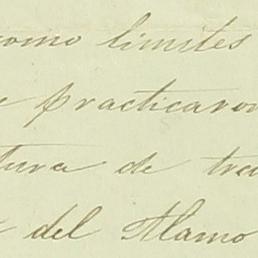 como limites
practicaron
tura de tra
del Alamo